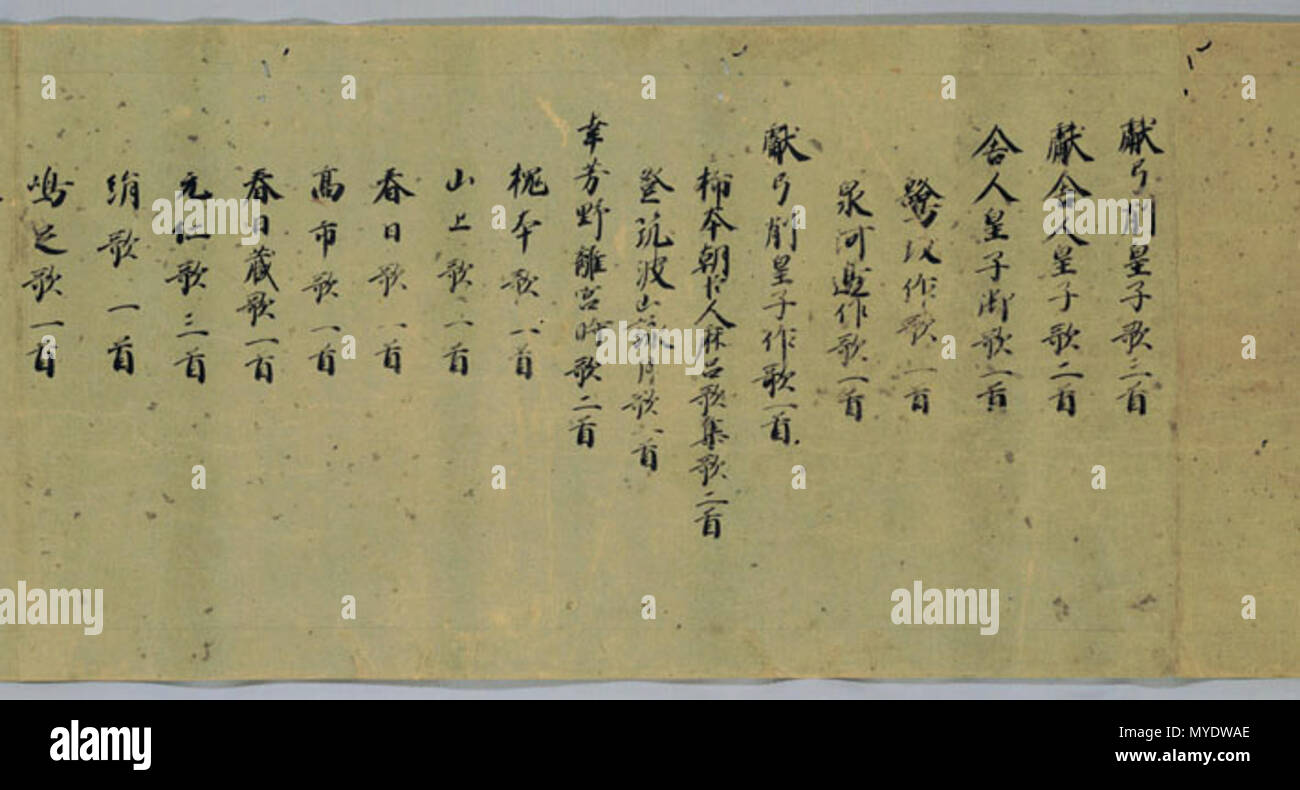 獻弓削皇子歌三首
獻舍人皇子歌二首
舍人皇子御歌一首
鷺坂作歌一首
泉河邊作歌一首
獻弓削皇子作歌一首
柿本朝臣人麻呂歌集歌二首
登筑波山詠月歌一首
幸芳野離宮時歌二首
槐本歌一首
山上歌一首
春日歌一首
高市歌一首
春日蔵歌一首
元仁歌三首
絹歌一首
嶋足歌一首
alamy
alamy
Image ID: MYDWAE
www.alamy.com